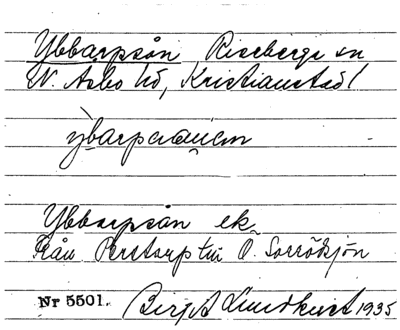 Ybbarpsån Riseberga sn
V. Asbo hd, Kristianstad l
Ybbarpsån ek.
från Perstorp till Ö. Sorrödsjön
Nr 5501. Birgit Lundkvist 1935